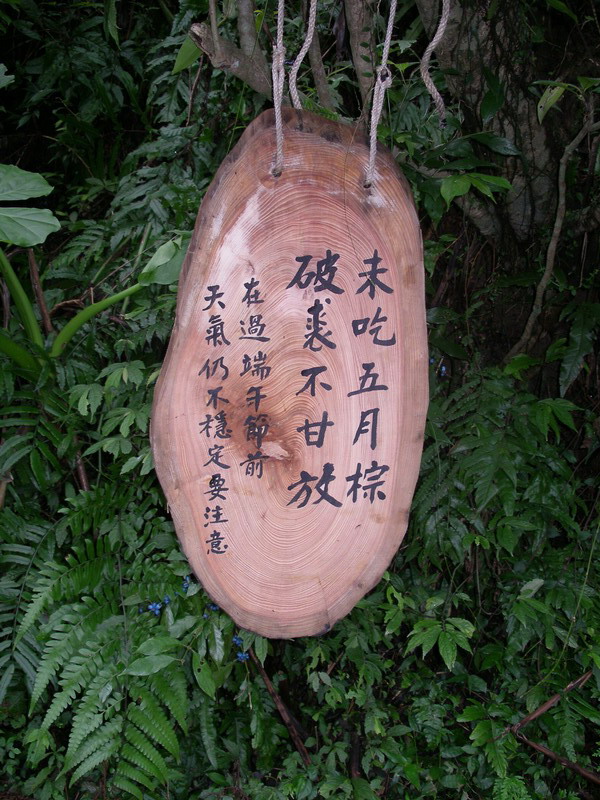 未吃五月棕
破裘不甘放
在過端午節前
天氣仍不穩定要注意